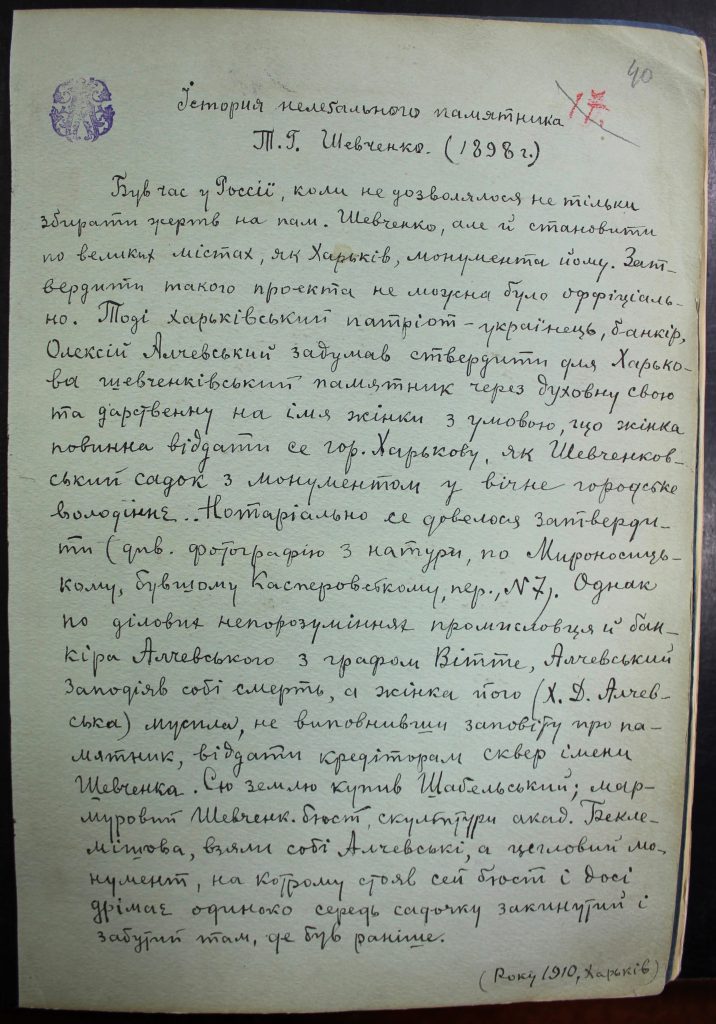 40
17.
Істория нелегального памятника
Т. Г. Шевченко. (1898 г.)
Був час у Россії, коли не дозволялося не тільки
збирати жертв на пам. Шевченко, але й становити
по великих містах, як Харьків, монумента йому. Зат-
вердити такого проекта не можна було оффіціаль-
но. Тоді Харьківський патріот-українець, банкір,
Олексій Алчевський задумав ствердити для Харько-
ва шевченківський памятник через духовну свою
та дарственну на імя жінки з умовою, що жінка
повинна віддати се гор. Харькову, як Шевченков-
ський садок з монументом у вічне городське
володіннє.. Нотаріально се довелося затверди-
ти (див. фотографію з натури, по Мироносиць-
кому, бувшому Касперовському, пер., N 7). Однак
по ділових непорозуміннях промисловця й бан-
кіра Алчевського з графом Вітте, Алчевський
заподіяв собі смерть, а жінка його (Х. Д. Алчев-
ська) мусила, не виповнивши заповіту про па-
мятник, віддати кредіторам сквер імени
Шевченка. Сю землю купив Шабельський; мар-
муровий Шевченк. бюст, скульптури акад. Бекле-
мішова, взяли собі Алчевські, а цегловий мо-
нумент, на котрому стояв сей бюст і досі
дрімає одиноко середь садочку закинутий і
забутий там, де був раніше.
(Року 1910, Харьків)